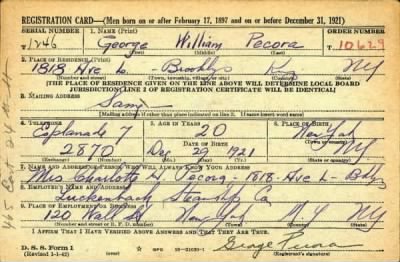 REGISTRATION CARD—(Men born on or after February 17, 1897 and on or before December 31, 1921)
SERIAL NUMBER 1. NAME (Print) ORDER NUMBER
1246 George William Pecora T 10629
(First) (Middle) (Last)
2. PLACE OF RESIDENCE (Print)
1818 Ave L. Brooklyn Kings NY
(Number and street) (Town, township, village, or city) (County) (State)
[THE PLACE OF RESIDENCE GIVEN ON THE LINE ABOVE WILL DETERMINE LOCAL BOARD
JURISDICTION; LINE 2 OF REGISTRATION CERTIFICATE WILL BE IDENTICAL]
3. MAILING ADDRESS
Same
4. TELEPHONE 5. AGE IN YEARS 6. PLACE OF BIRTH
Esplanade 7 20 New York
DATE OF BIRTH
2870 Dec 29 1921 NY
(Exchange) (Number) (Mo.) (Day) (Yr.) (State or country)
7. NAME AND ADDRESS OF PERSON WHO WILL ALWAYS KNOW YOUR ADDRESS
Mrs Charlotte Pecora - 1818 - Ave L - Bklyn
8. EMPLOYER'S NAME AND ADDRESS
Luckenbach Steamship Co
9. PLACE OF EMPLOYMENT OR BUSINESS
120 Wall St New York N.Y. NY
(Number and street or R. F. D. number) (Town) (County) (State)
I AFFIRM THAT I HAVE VERIFIED ABOVE ANSWERS AND THAT THEY ARE TRUE.
D. S. S. Form 1
(Revised 1-1-42) George Pecora